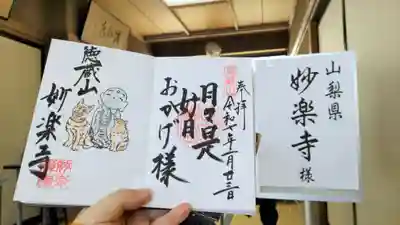 奉拝
令和七年一月廿三日
月々是
好月
おかげ様
徳蔵山
妙楽寺
山梨県
妙楽寺様